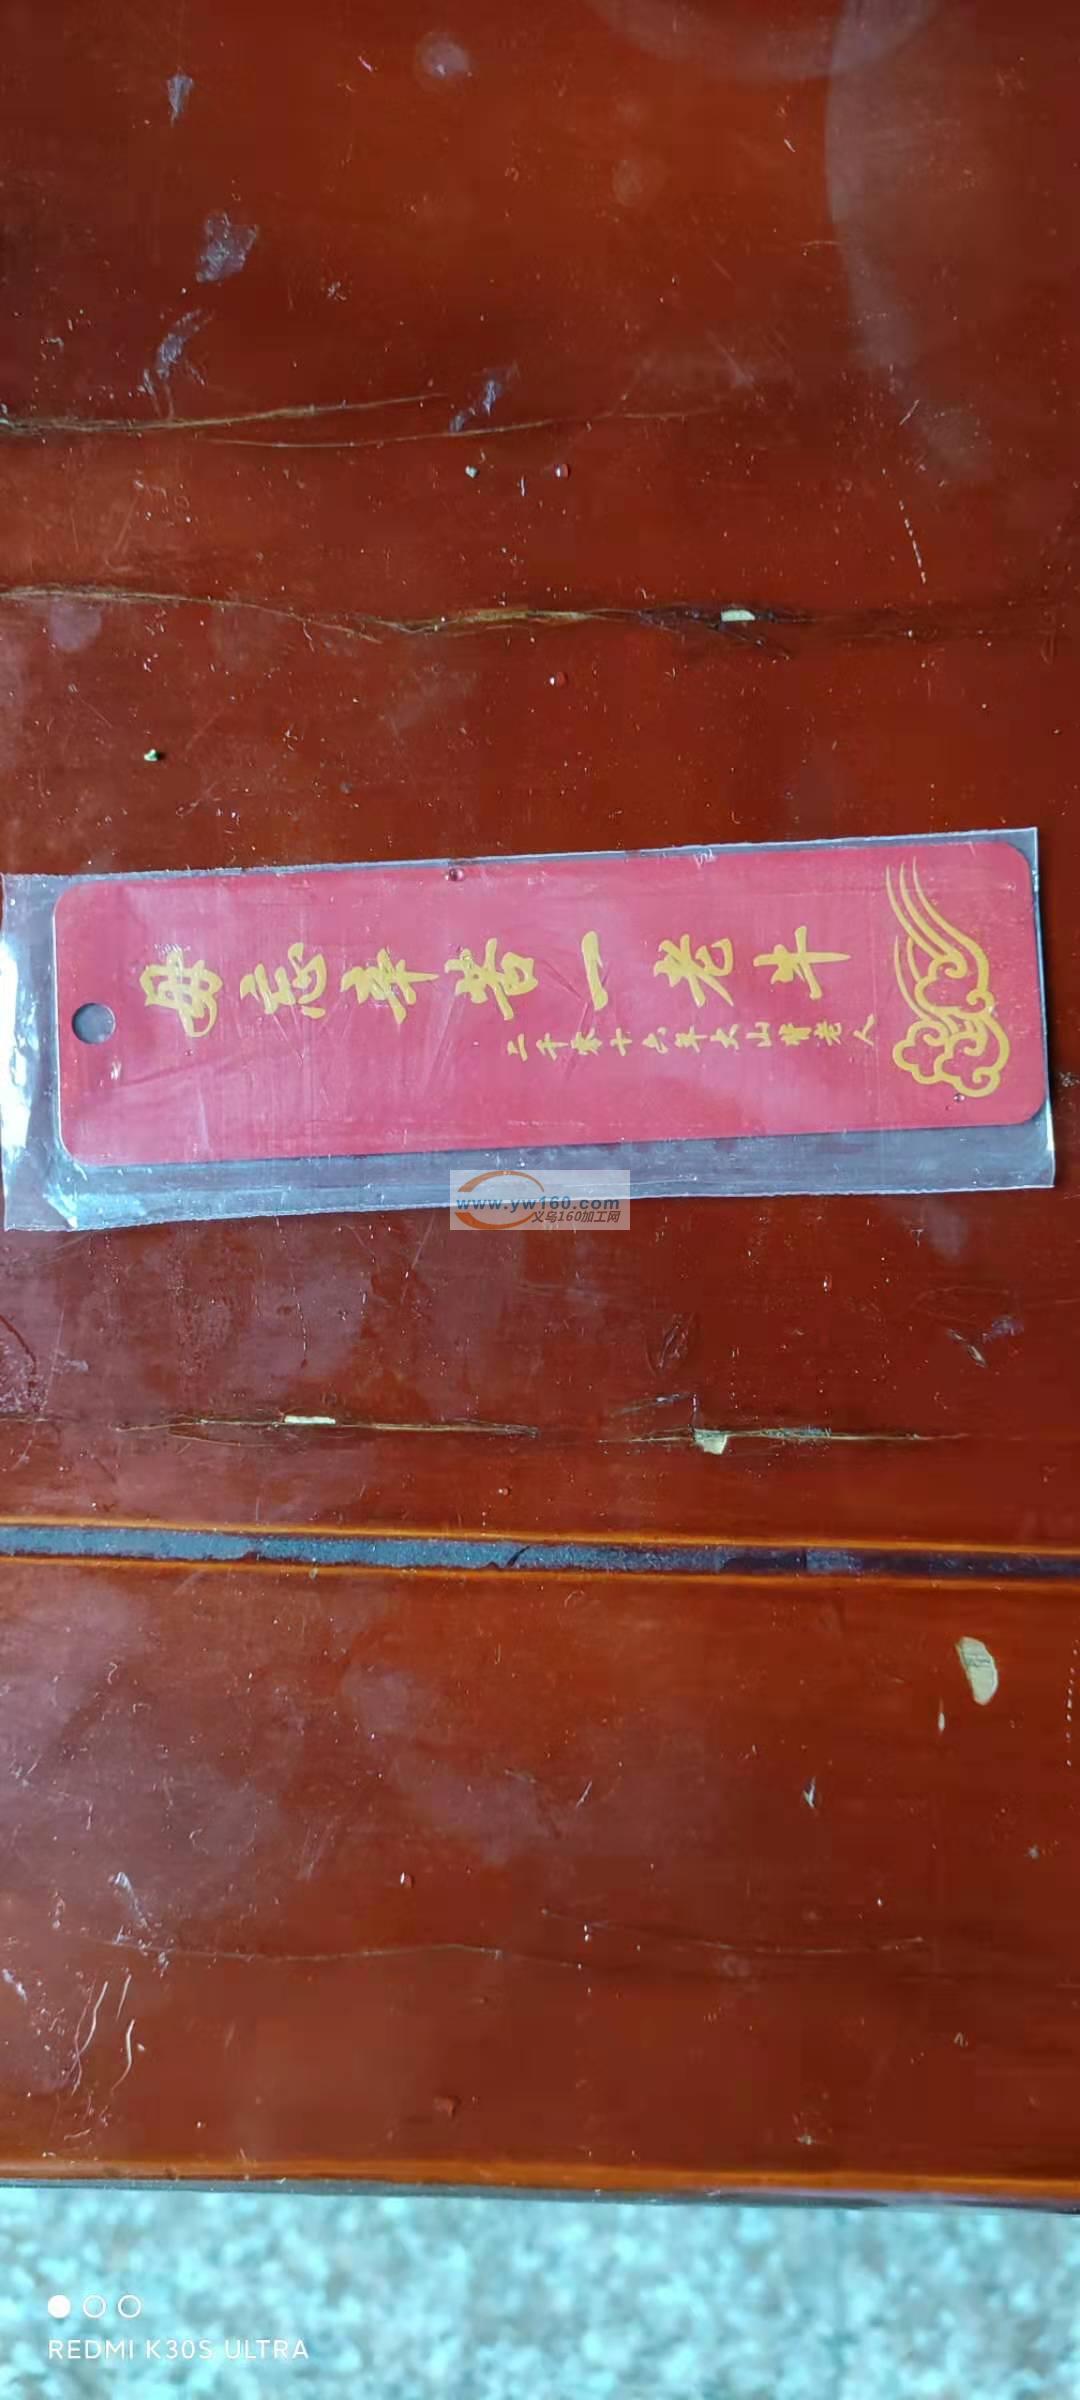 毋忘辛苦一老牛
二千零十六年大山背老人
www.yw160.com
义乌160加工网
REDMI K30S ULTRA